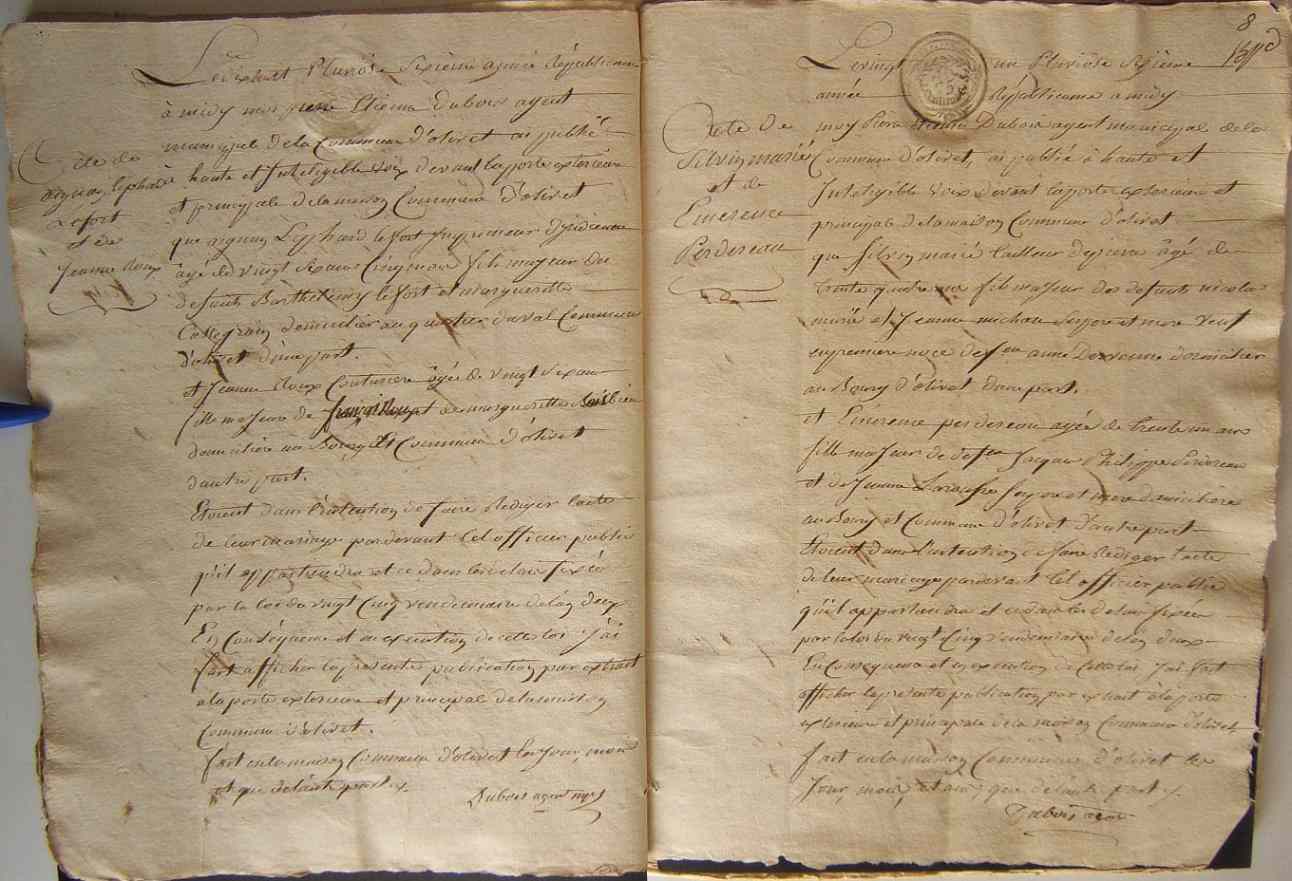 Le dixhuit Pluviôse Sixieme année Républicaine
à midy moi pierre Etienne Dubois agent
municipal de la Commune d'olivet ai publié
à haute et Inteligible voix devant la porte exterieure
et principale de la maison Commune d'olivet
que aignan Liphard lefort
âgé de vingt six ans Cinq mois fils majeur du
defunt Barthelemy lefort et margueritte
domicilier au quartier du val Commune
d'olivet d'une part.
et Jeanne Couturiere âgée de vingt six ans
fille majeure de et de margueritte
domiciliée au Bourg et Commune d'olivet
d'autre part.
Etoient dans l'intention de faire Rediger l'acte
de leur mariage pardevant tel officier public
qu'il appartiendra et ce dans les delais fixés
par la loi du vingt Cinq vendemiaire de l'an deux
En Conséquence et en execution de cette loi j'ai
fait afficher la presente publication par extrait
a la porte exterieure et principal de la maison
Commune d'olivet.
fait en la maison Commune d'olivet les jour, mois
et que de l'autre part
Dubois agent
Acte de
aignan Liphard
Lefort
et de
Jeanne
8
Le vingt un Pluviôse Sixieme
année Républicaine a midy
moy Pierre Etienne Dubois agent municipal de la
Commune d'olivet, ai publié à haute et
Inteligible voix devant la porte exterieure et
principale de la maison Commune d'olivet
que Silvin marié tailleur de pierre âgé de
trente quatre ans fils majeur des defunts nicolas
marié et Jeanne michau ses pere et mere veuf
en premiere noce de feu anne domicilier
au Bourg d'olivet d'une part.
et Emerence perdereau agée de trente un ans
fille majeure de defeu Jacque Philippe Perdereau
et de Jeanne ses pere et mere domiciliée
au Bourg et Commune d'olivet d'autre part
Etoient dans L'intention de faire Rediger l'acte
de leur mariage pardevant tel officier public
qu'il appartiendra et ce dans les delais fixés
par la loi du vingt Cinq vendemiaire de l'an deux
En Consequence et en execution de cette loi j'ai fait
afficher la presente publication par extrait à la porte
exterieure et principale de la maison Commune d'olivet
fait en la maison Commune d'olivet les
Jour, mois, et an que de l'autre part
Dubois
Acte de
Silvin marié
et de
Emerence
Perdereau